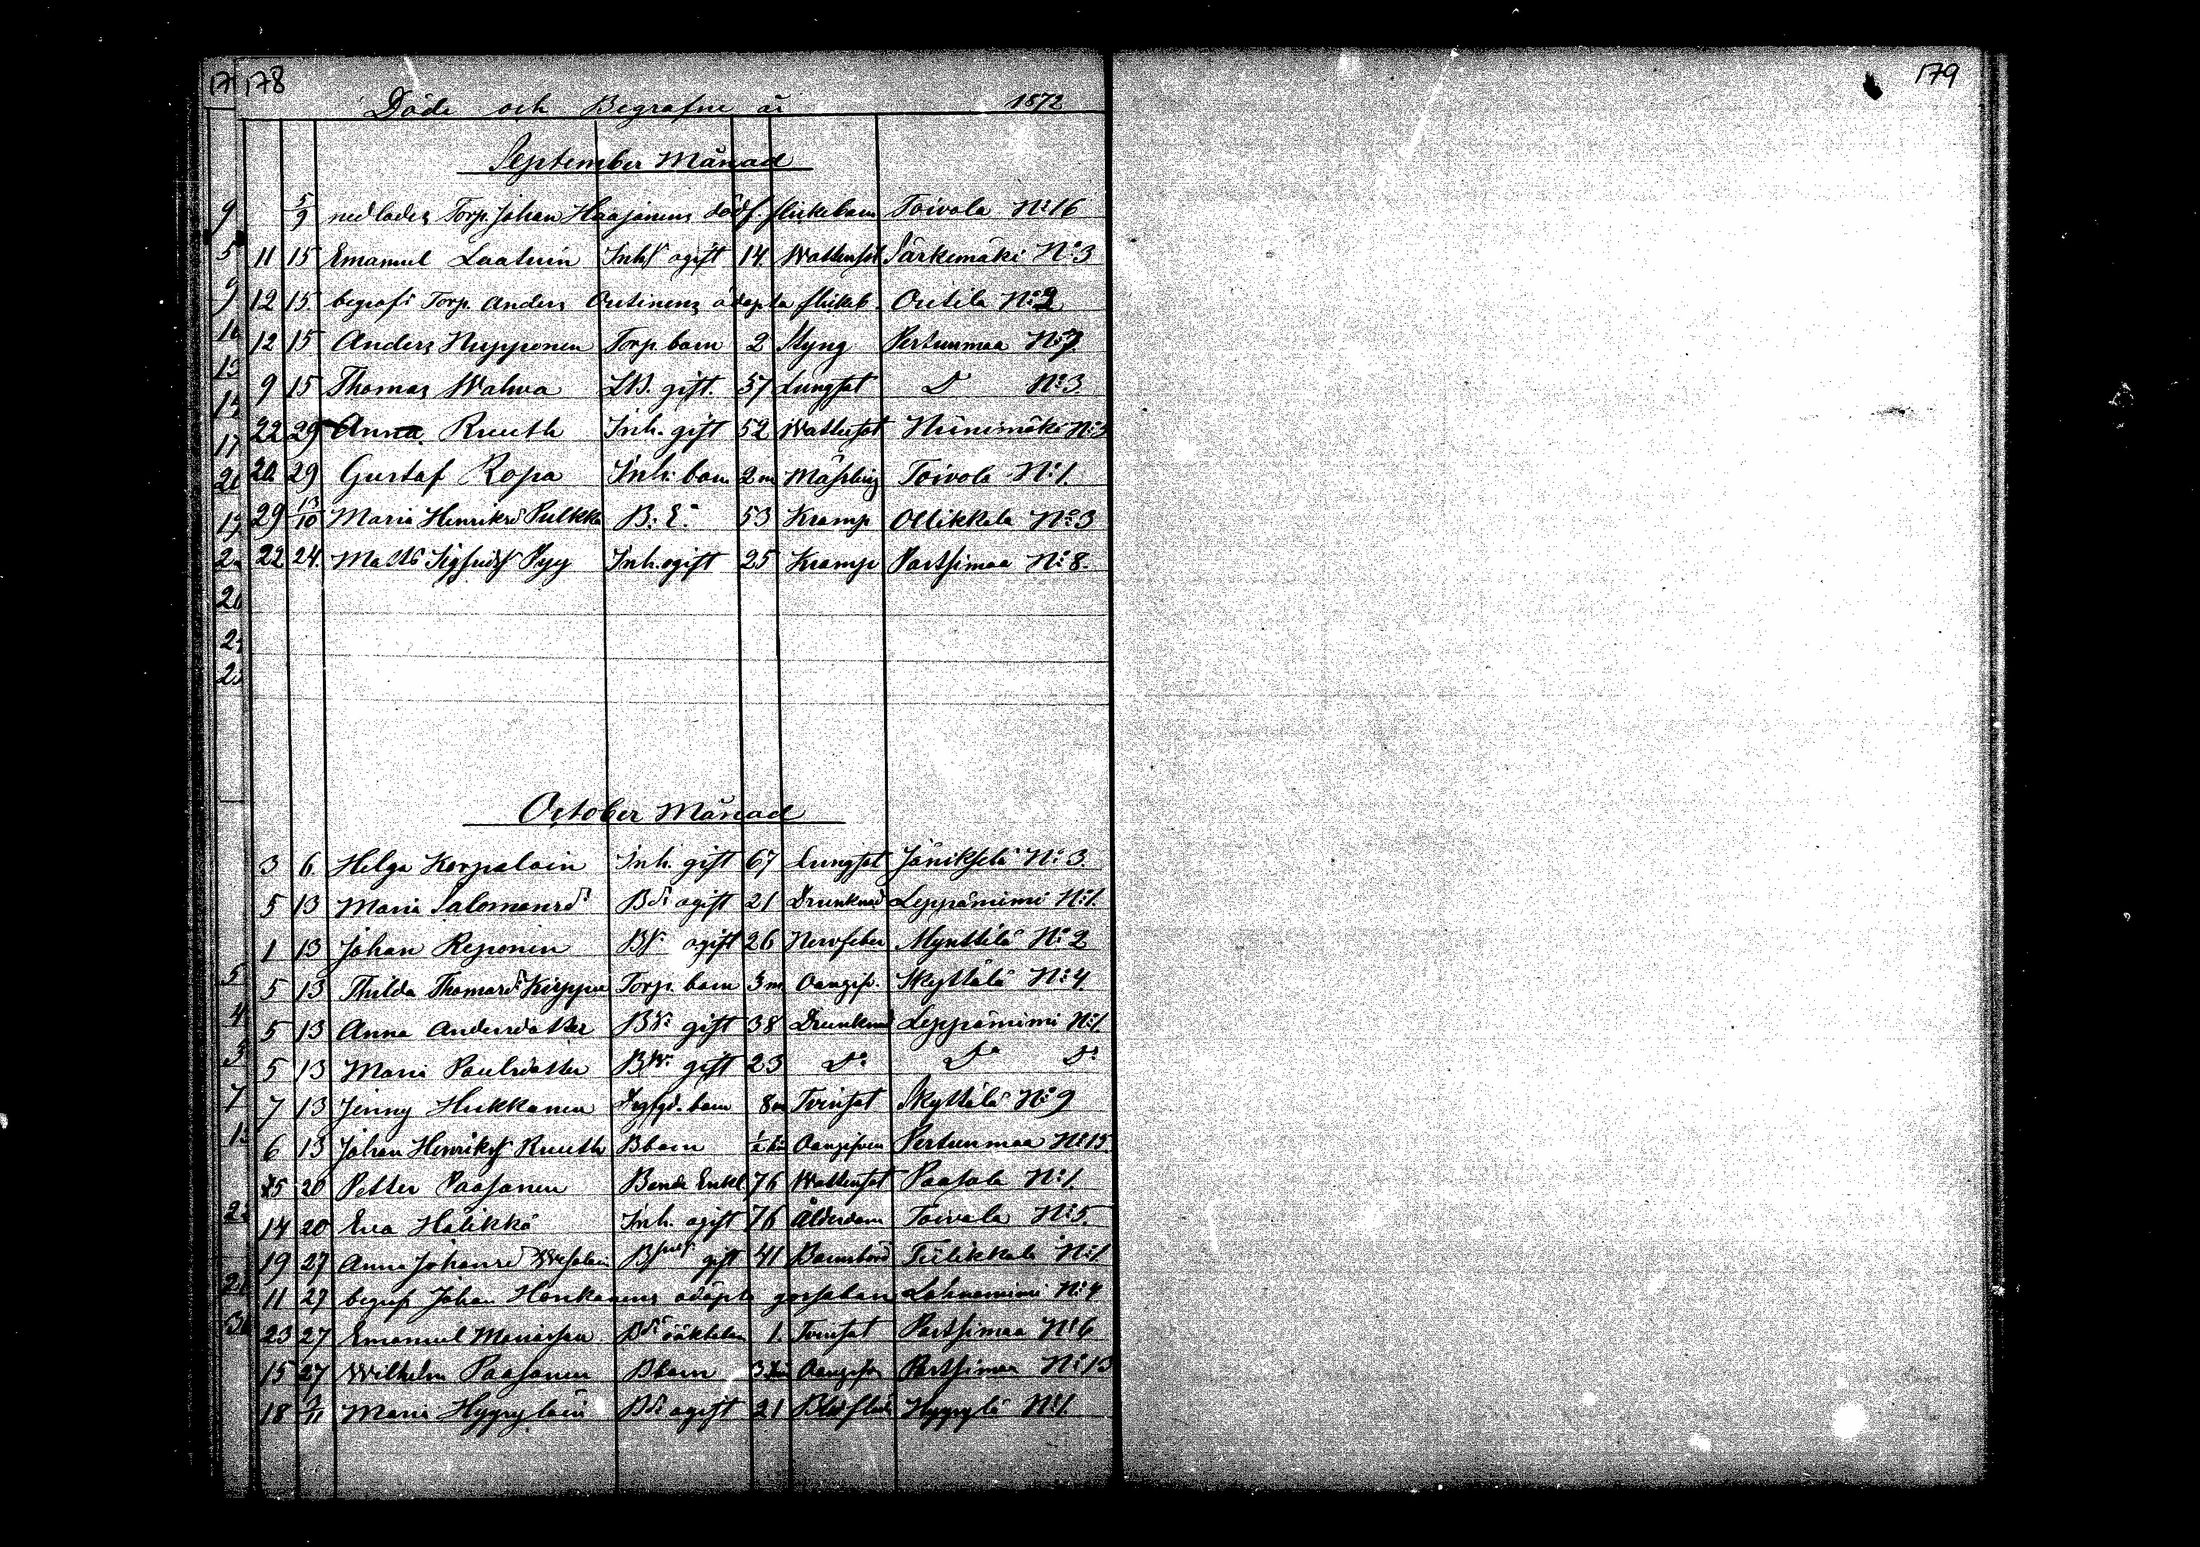 178
179
Döde och Begrafne år 1872
September Månad
5/9 nedlades Torp. Johan Haajanens dödf. flickebarn Toivola No 16
11 15 Emanuel Laatuin Inhs ogift 14 Wattensot Särkemäki No 3
12 15 begrofs Torp. Anders Outinens odöpta flickeb. Outila No 2
12 15 Anders Nupponen Torp. barn 2 Styng Pertunmaa No 7
9 15 Thomas Walwa gift. 57 Lungsot Do No 3
22 29 Anna Ruuth Inh. gift 52 Wattusot Niinimäki No
20 29 Gustaf Ropa Inh. barn 2 m Mässling Toivola No 1.
29 13/10 Maria Henriksd Pulkka B. E. 53 Kramp Ollikkala No 3
22 24. Matts Sigfridss Pyy Inh. ogift 25 Kramp Partsimaa No 8.
October Månad
3 6 Helga Korpelain Inh. gift 67 Lungsot Jänikselä No 3.
5 13 Maria Salomonsdr Bdr ogift 21 Drunknad Leppäniemi No 1.
1 13 Johan Reponen Bs. ogift 26 Nervfeber Mynttilä No 2
5 13 Thilda Thomasdr Kieppu Torp. barn 3 m Oangifv. Skyttälä No 4
5 13 Anna Andersdotter gift 38 Drunknad Leppäniemi No 1
5 13 Maria Paulsdotter gift 23 Do Do Do
7 13 Jenny Hukkanen barn 8 m Tvinsot Skyttälä No 9
6 13 Johan Henrikss Ruuth Bbarn Oangifven Pertunmaa No 15.
15 20 Petter Paasonen Bonde Enkl. 76 Wattensot Paasola No 1.
14 20 Eva Halikka Inh. ogift 76 Ålderdom Toivola No 5.
19 27 Anna Johansd gift 41 Barnsbörd Tiilikkala No 1
11 27 begrofs Johan Honkanens odöpta gossabarn Lahnaniemi No 4
23 27 Emanuel Mariasson oäkta 1. Tvinsot Partsimaa No 6
15 27 Wilhelm Paasonen Bbarn 3 Oangifven Partsimaa No 13
18 3/11 Maria Hyyryläin Bdr ogift 21 Hyyrylä No 1.